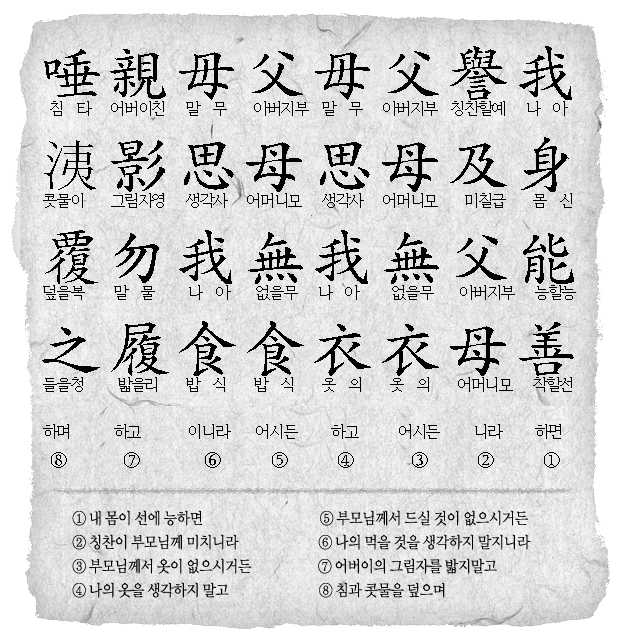 我 나 아 身 몸 신 能 능할능 善 착할선 하면 ①
譽 칭찬할예 及 미칠급 父 아버지부 母 어머니모 니라 ②
父 아버지부 母 어머니모 無 없을무 衣 옷 의 어시든 ③
毋 말 무 思 생각사 我 나 아 衣 옷 의 하고 ④
父 아버지부 母 어머니모 無 없을무 食 밥 식 어시든 ⑤
毋 말 무 思 생각사 我 나 아 食 밥 식 이니라 ⑥
親 어버이친 影 그림자영 勿 말 물 履 밟을리 하고 ⑦
唾 침 타 洟 콧물아 覆 덮을복 之 들을청 하며 ⑧
① 내 몸이 선에 능하면
② 칭찬이 부모님께 미치니라
③ 부모님께서 옷이 없으시거든
④ 나의 옷을 생각하지 말고
⑤ 부모님께서 드실 것이 없으시거든
⑥ 나의 먹을 것을 생각하지 말지니라
⑦ 어버이의 그림자를 밟지말고
⑧ 침과 콧물을 덮으며